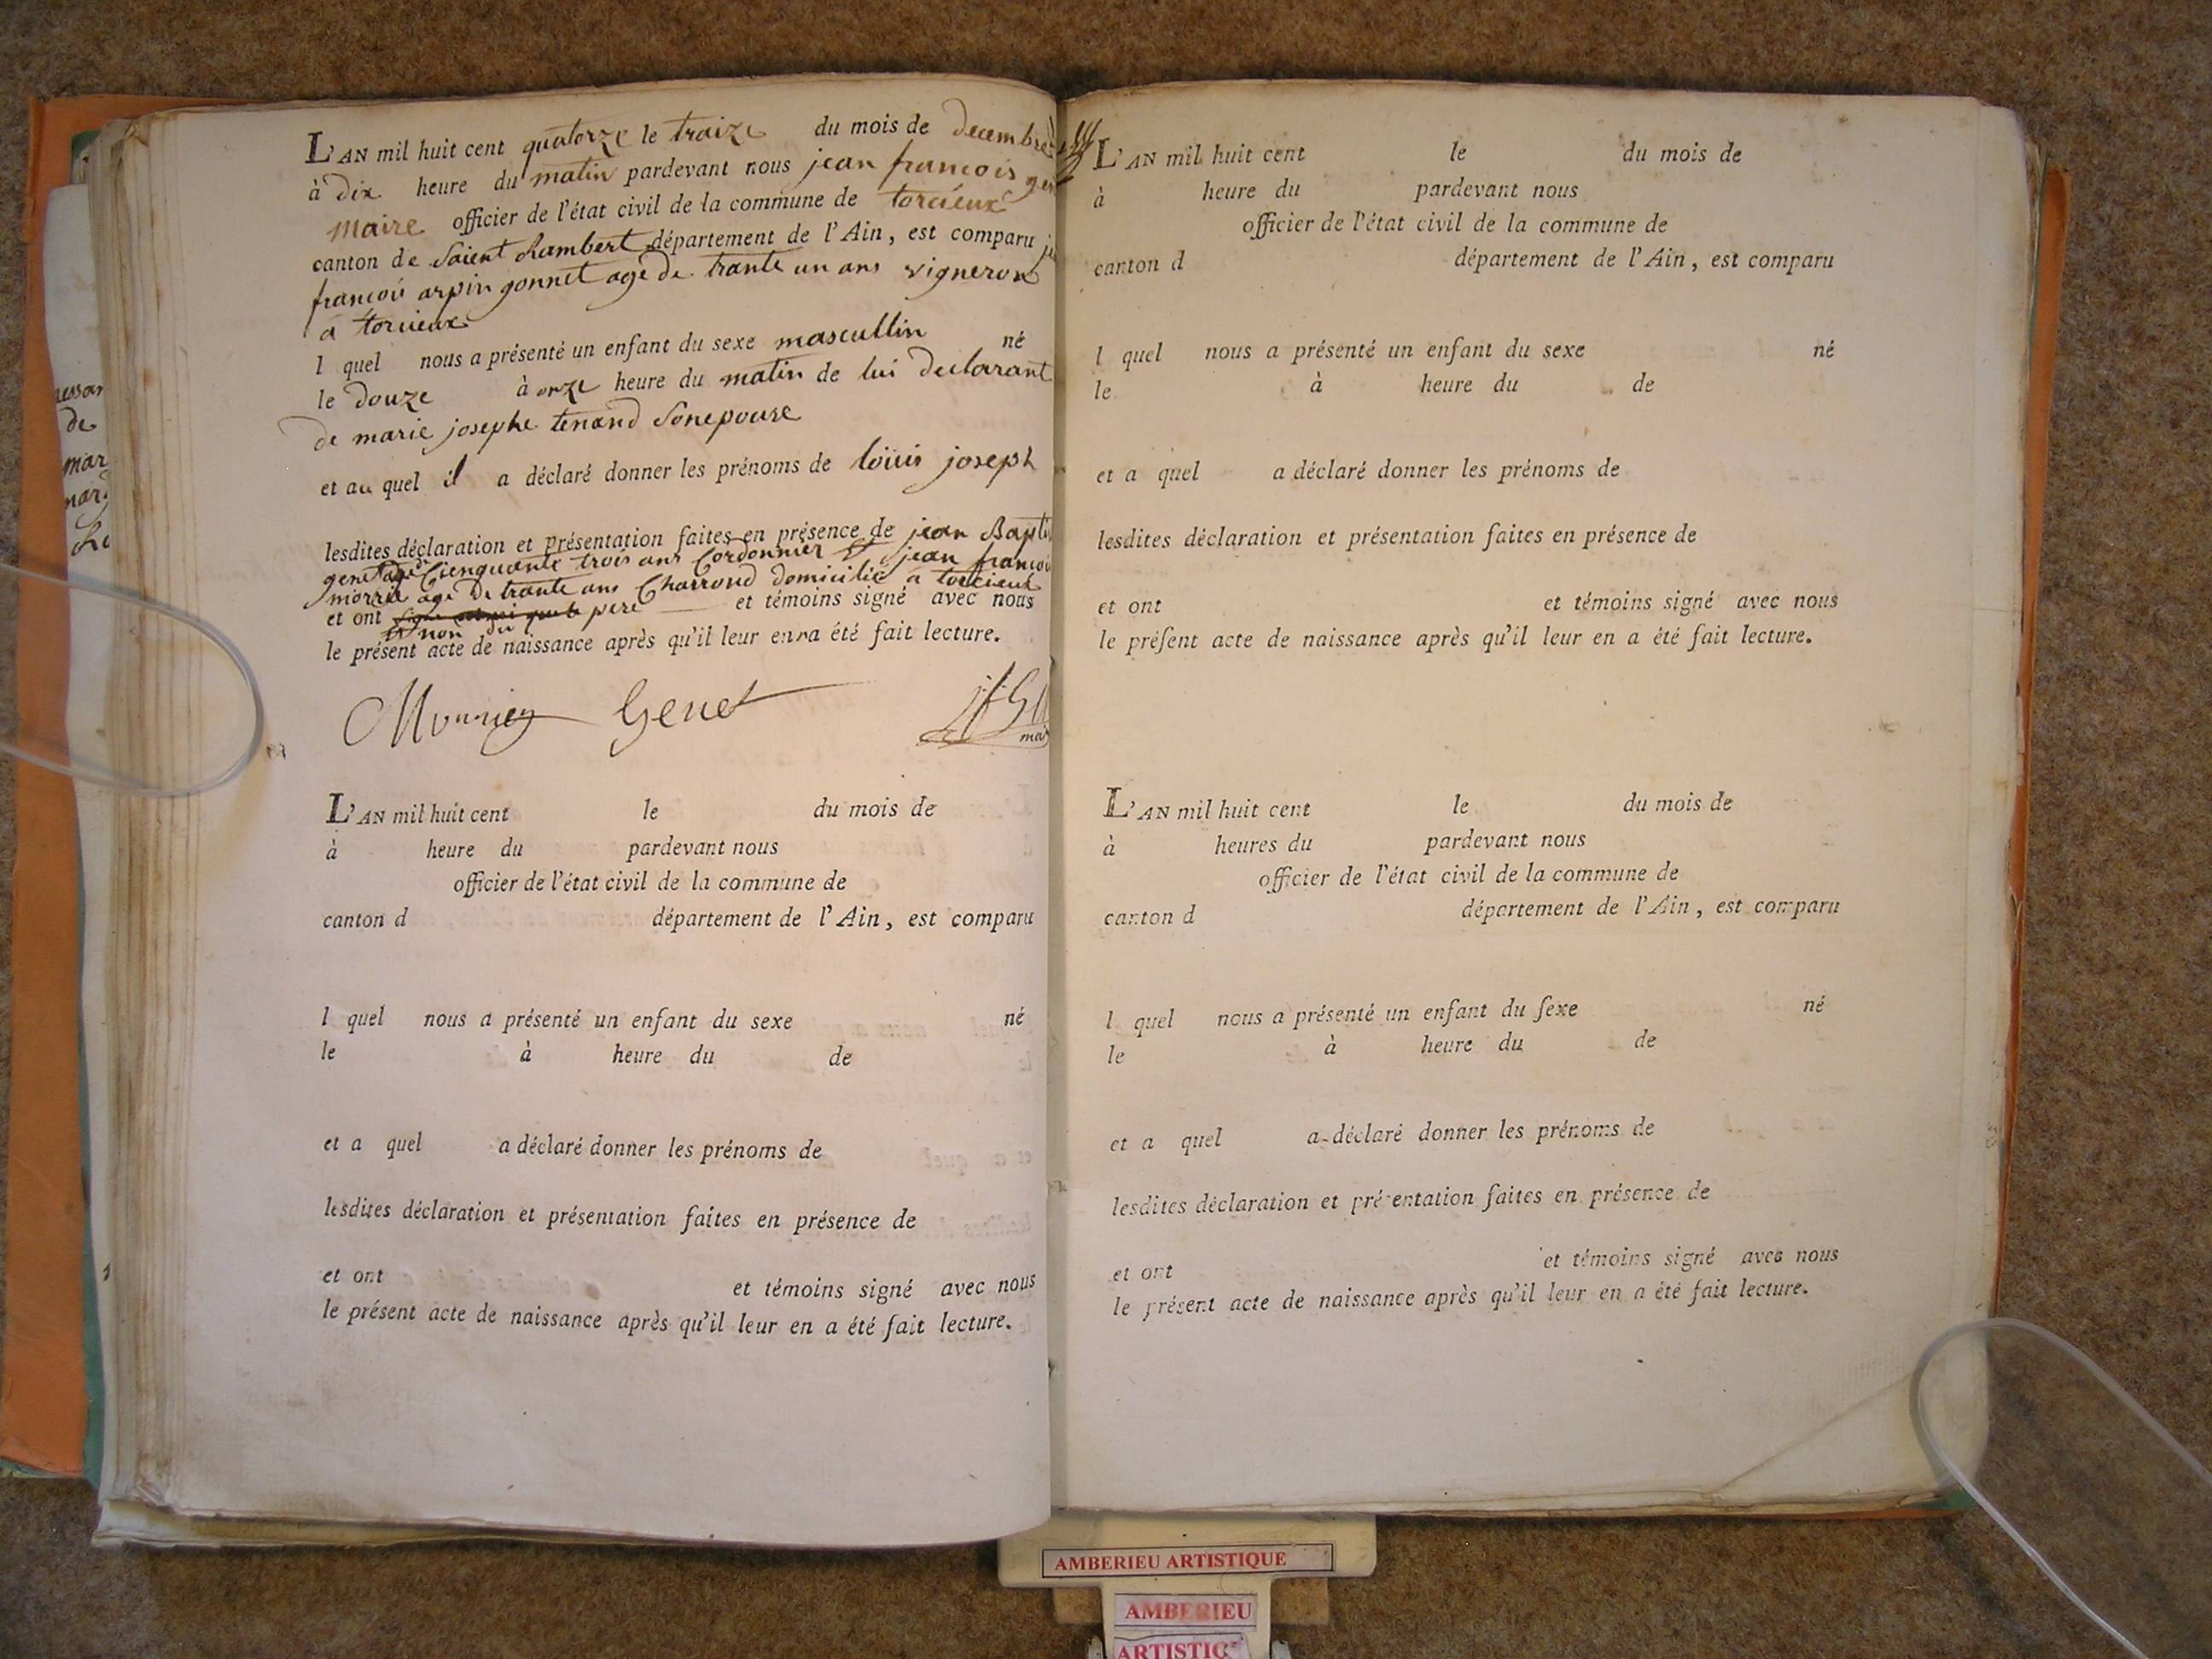 L'AN mil huit cent quatorze le traize du mois de decembre
à dix heure du matin pardevant nous jean francois
maire officier de l'état civil de la commune de torcieux
canton de Saient Rambert département de l'Ain, est comparu
francois arpin gonnet age de trante un ans vigneron
a torcieux
l quel nous a présenté un enfant du sexe mascullin né
le douze à onze heure du matin de lui declarant
de marie josephe tenand Sonepouse
et au quel il a déclaré donner les prénoms de loüis joseph
lesdites déclaration et présentation faites en présence de jean Baptis
genet age de Cienquante trois ans Cordonnier et jean francois
age De trante ans Charrond domicilié a torcieux
et ont pere et témoins signé avec nous
et non du
le présent acte de naissance après qu'il leur en a été fait lecture.
Genet
L'AN mil huit cent le du mois de
à heure du pardevant nous
officier de l'état civil de la commune de
canton d département de l'Ain, est comparu
l quel nous a présenté un enfant du sexe né
le à heure du de
et a quel a déclaré donner les prénoms de
lesdites déclaration et présentation faites en présence de
et ont et témoins signé avec nous
le présent acte de naissance après qu'il leur en a été fait lecture.
L'AN mil huit cent le du mois de
à heure du pardevant nous
officier de l'état civil de la commune de
canton d département de l'Ain, est comparu
l quel nous a présenté un enfant du sexe né
le à heure du de
et a quel a déclaré donner les prénoms de
lesdites déclaration et présentation faites en présence de
et ont et témoins signé avec nous
le préſent acte de naissance après qu'il leur en a été fait lecture.
L'AN mil huit cent le du mois de
à heures du pardevant nous
officier de l'état civil de la commune de
canton d département de l'Ain, est comparu
l quel nous a présenté un enfant du ſexe né
le à heure du de
et a quel a déclaré donner les prénoms de
lesdites déclaration et présentation faites en présence de
et ont et témoins signé avec nous
le présent acte de naissance après qu'il leur en a été fait lecture.
AMBERIEU ARTISTIQUE
AMBERIEU
ARTISTIQ